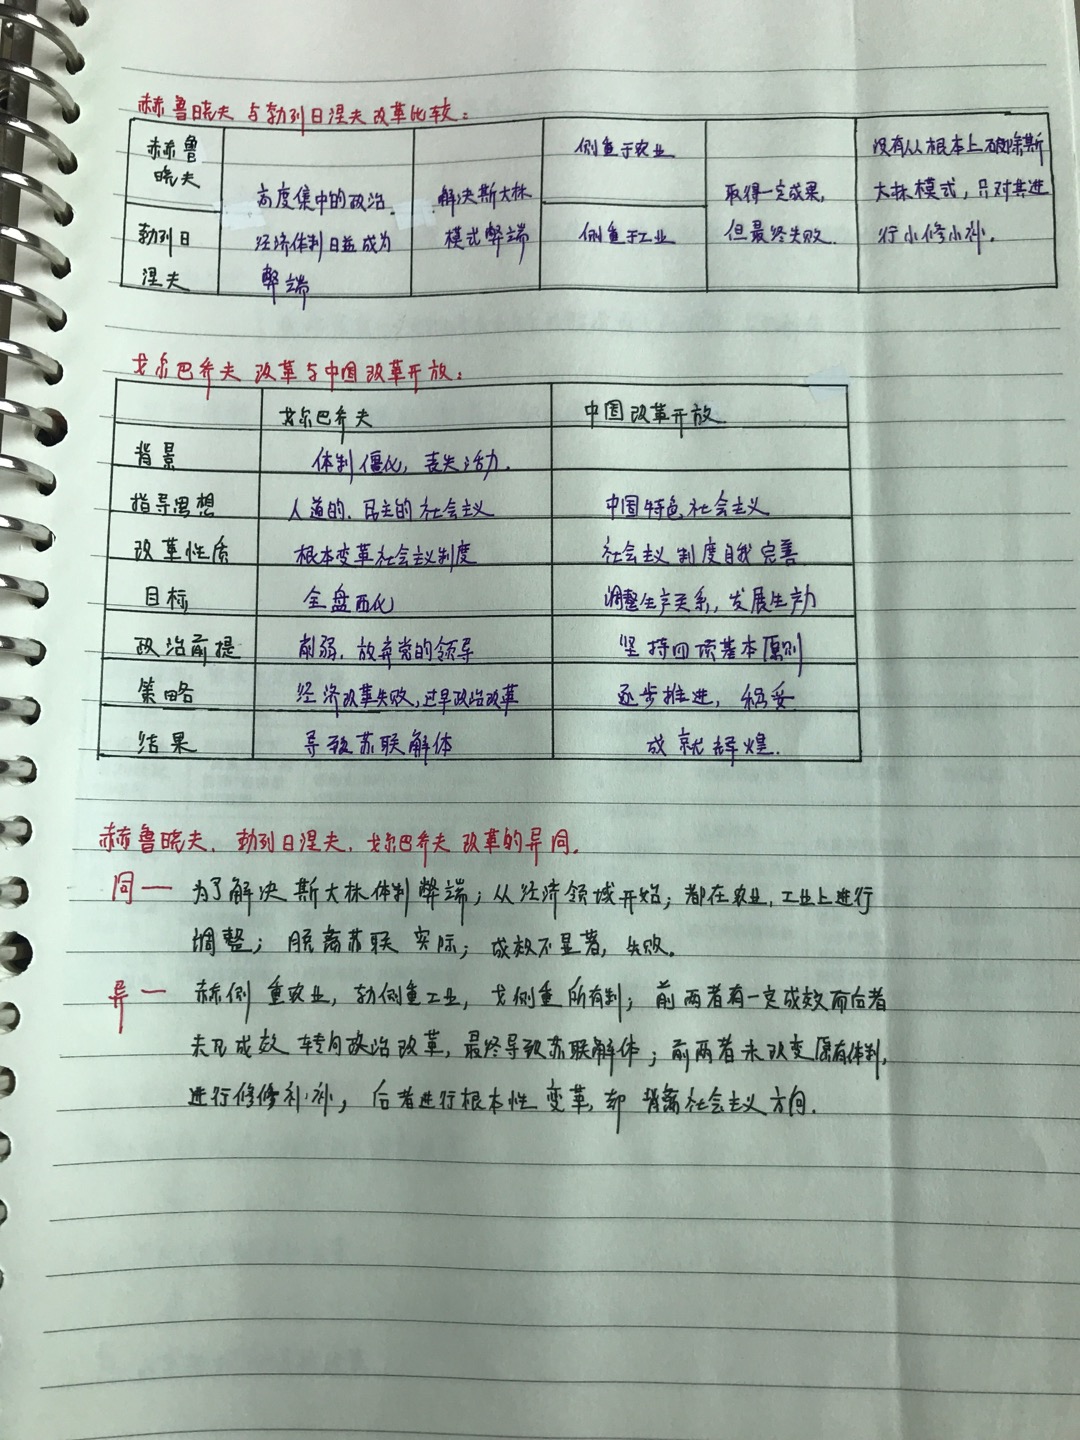 赫鲁晓夫与勃列日涅夫改革比较：
赫鲁 侧重于农业 没有从根本上破除斯
晓夫 高度集中的政治、 解决斯大林 取得一定成果， 大林模式，只对其进
勃列日 经济体制日益成为 模式弊端 侧重于工业 但最终失败. 行小修小补.
涅夫 弊端
戈尔巴乔夫改革与中国改革开放：
戈尔巴乔夫 中国改革开放.
背景 体制僵化，丧失活力.
指导思想 人道的、民主的社会主义 中国特色社会主义
改革性质 根本变革社会主义制度 社会主义制度自我完善
目标 全盘西化 调整生产关系，发展生产力
政治前提 削弱、放弃党的领导 坚持四项基本原则
策略 经济改革失败，过早政治改革 逐步推进，稳妥
结果 导致苏联解体 成就辉煌.
赫鲁晓夫、勃列日涅夫、戈尔巴乔夫改革的异同.
同一 为了解决斯大林体制弊端；从经济领域开始；都在农业、工业上进行
调整；脱离苏联实际；成效不显著，失败。
异一 赫侧重农业，勃侧重工业，戈侧重所有制；前两者有一定成效而后者
未见成效转向政治改革，最终导致苏联解体；前两者未改变原有体制，
进行修修补补，后者进行根本性变革，却背离社会主义方向.